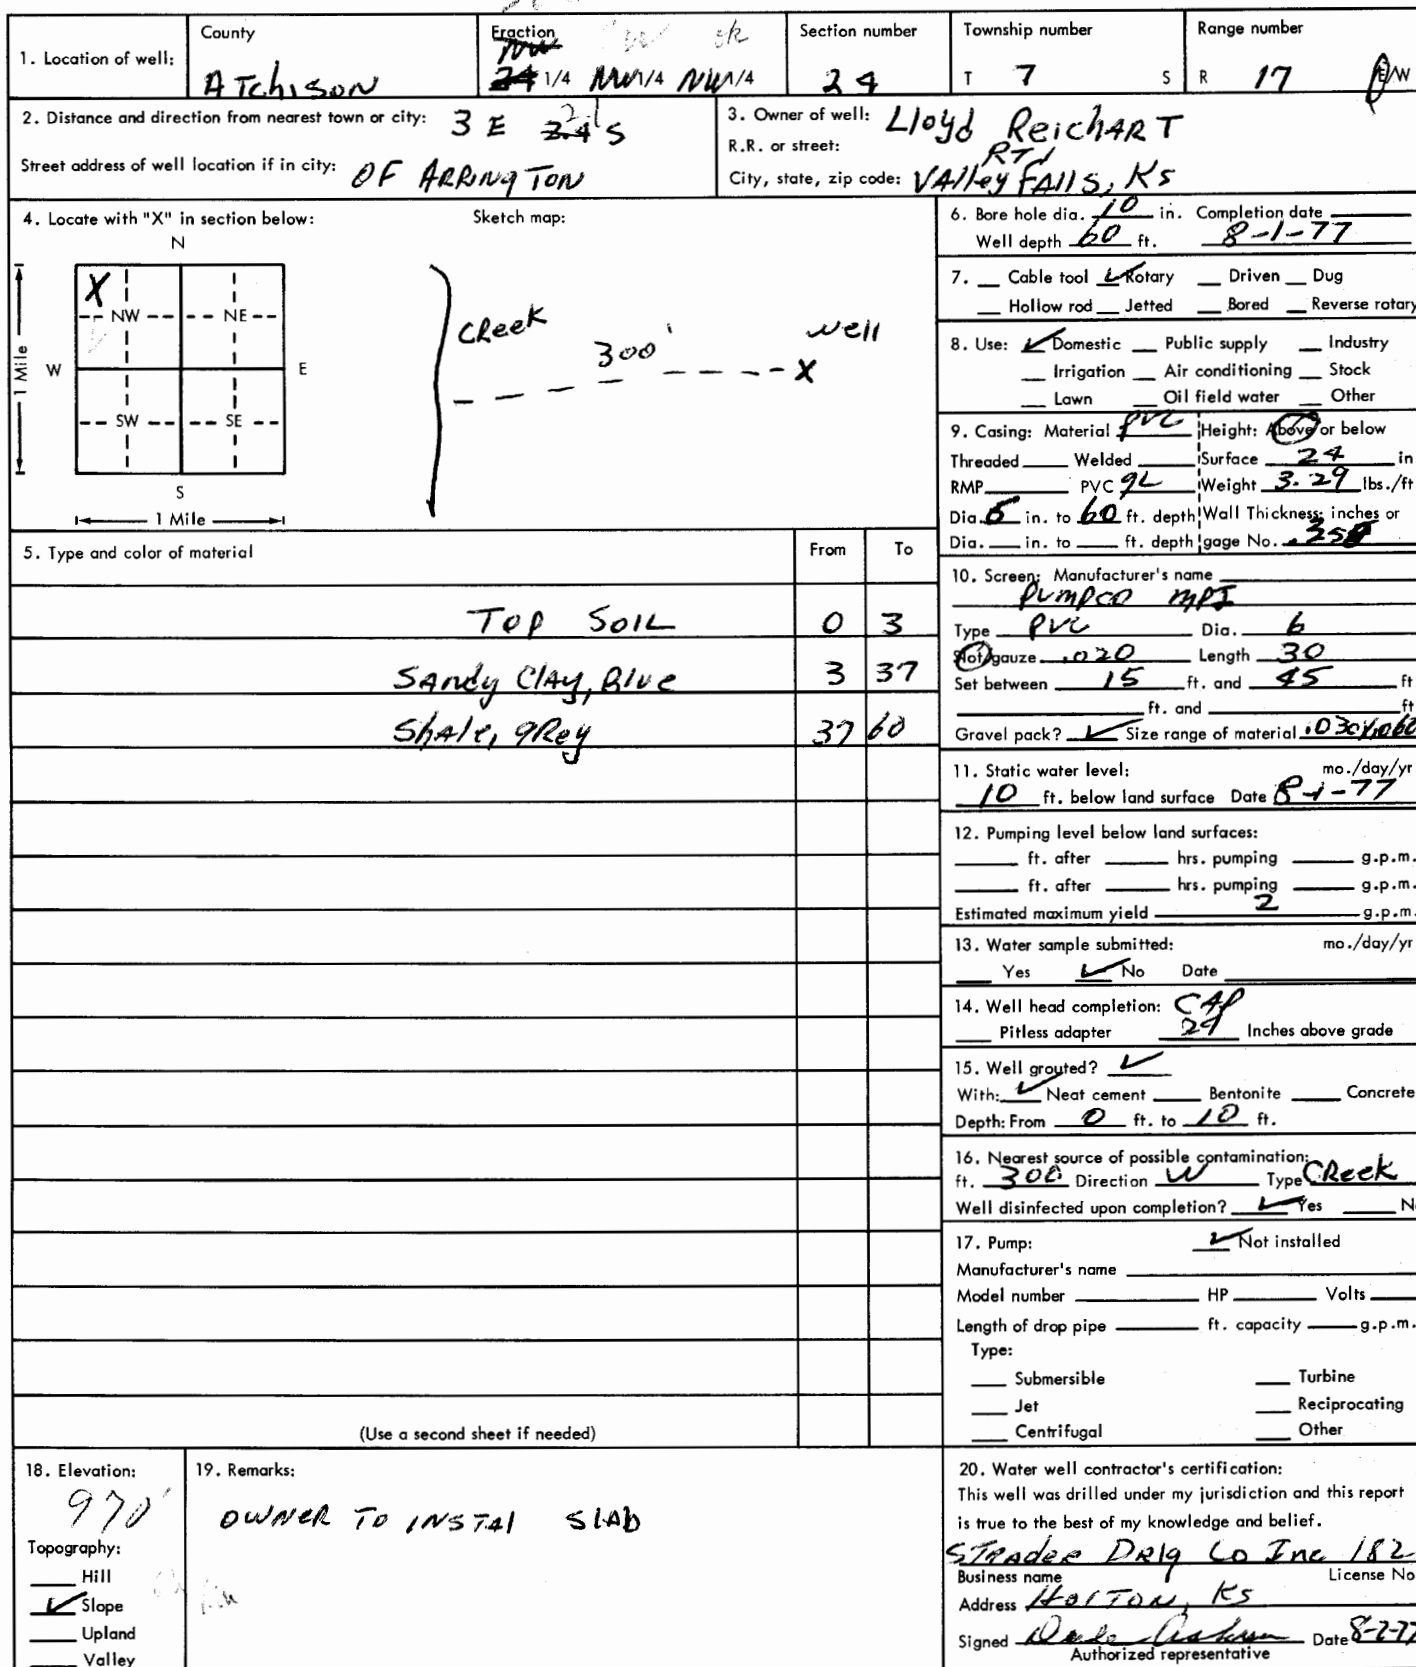 1. Location of well: County Fraction Section number Township number Range number
Atchison NW 24 1/4 NW 1/4 NW 1/4 24 T 7 S R 17 E/W
2. Distance and direction from nearest town or city: 3 E 2.4 S
Street address of well location if in city: OF ARRINGTON
3. Owner of well: Lloyd ReichART
R.R. or street:
City, state, zip code: VAlley FAllS, Ks
4. Locate with "X" in section below: Sketch map:
N
X
NW NE
W E
1 Mile
SW SE
S
1 Mile
CReek 300' well
X
5. Type and color of material From To
TOP SOIL 0 3
SANdy ClAy, Blue 3 37
ShAle, gRey 37 60
(Use a second sheet if needed)
6. Bore hole dia. 10 in. Completion date
Well depth 60 ft. 8-1-77
7. Cable tool ✓ Rotary Driven Dug
Hollow rod Jetted Bored Reverse rotary
8. Use: ✓ Domestic Public supply Industry
Irrigation Air conditioning Stock
Lawn Oil field water Other
9. Casing: Material PVC Height: Above or below
Threaded Welded Surface 24 in
RMP PVC gL Weight 3.29 lbs./ft
Dia. in. to 60 ft. depth Wall Thickness: inches or
Dia. in. to ft. depth gage No.
10. Screen: Manufacturer's name
PUMPCO MPI
Type PVC Dia. 6
Slot/gauze .020 Length 30
Set between 15 ft. and 45 ft
ft. and ft
Gravel pack? ✓ Size range of material .030X.060
11. Static water level: mo./day/yr
10 ft. below land surface Date 8-1-77
12. Pumping level below land surfaces:
ft. after hrs. pumping g.p.m.
ft. after hrs. pumping g.p.m.
Estimated maximum yield 2 g.p.m.
13. Water sample submitted: mo./day/yr
Yes ✓ No Date
14. Well head completion: CAP
Pitless adapter 24 Inches above grade
15. Well grouted? ✓
With: ✓ Neat cement Bentonite Concrete
Depth: From 0 ft. to 10 ft.
16. Nearest source of possible contamination:
ft. 300 Direction W Type CReek
Well disinfected upon completion? ✓ Yes N
17. Pump: ✓ Not installed
Manufacturer's name
Model number HP Volts
Length of drop pipe ft. capacity g.p.m.
Type:
Submersible Turbine
Jet Reciprocating
Centrifugal Other
18. Elevation:
970'
Topography:
Hill
✓ Slope
Upland
Valley
19. Remarks:
OWNER TO INSTAl SlAb
20. Water well contractor's certification:
This well was drilled under my jurisdiction and this report
is true to the best of my knowledge and belief.
STRAdeR DRlg Co Inc 182
Business name License No
Address HORTON, KS
Signed Date 8-2-77
Authorized representative